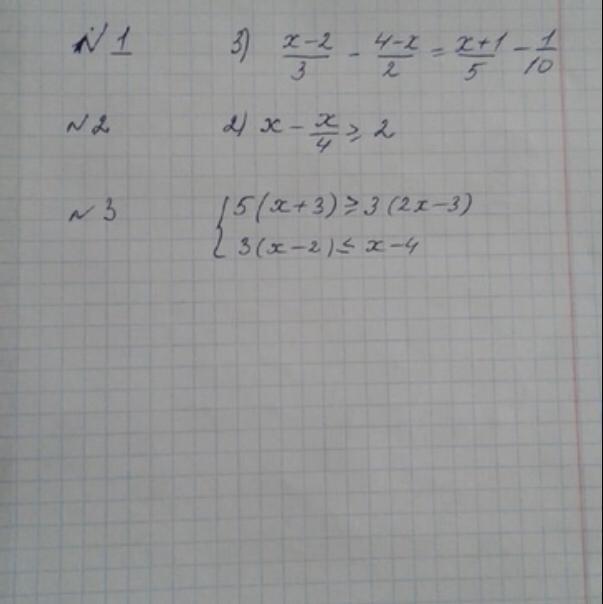 N 1 3) (x-2)/3 - (4-x)/2 = (x+1)/5 - 1/10
N 2 2) x - x/4 ≥ 2
N 3 { 5(x+3) ≥ 3(2x-3)
3(x-2) ≤ x-4